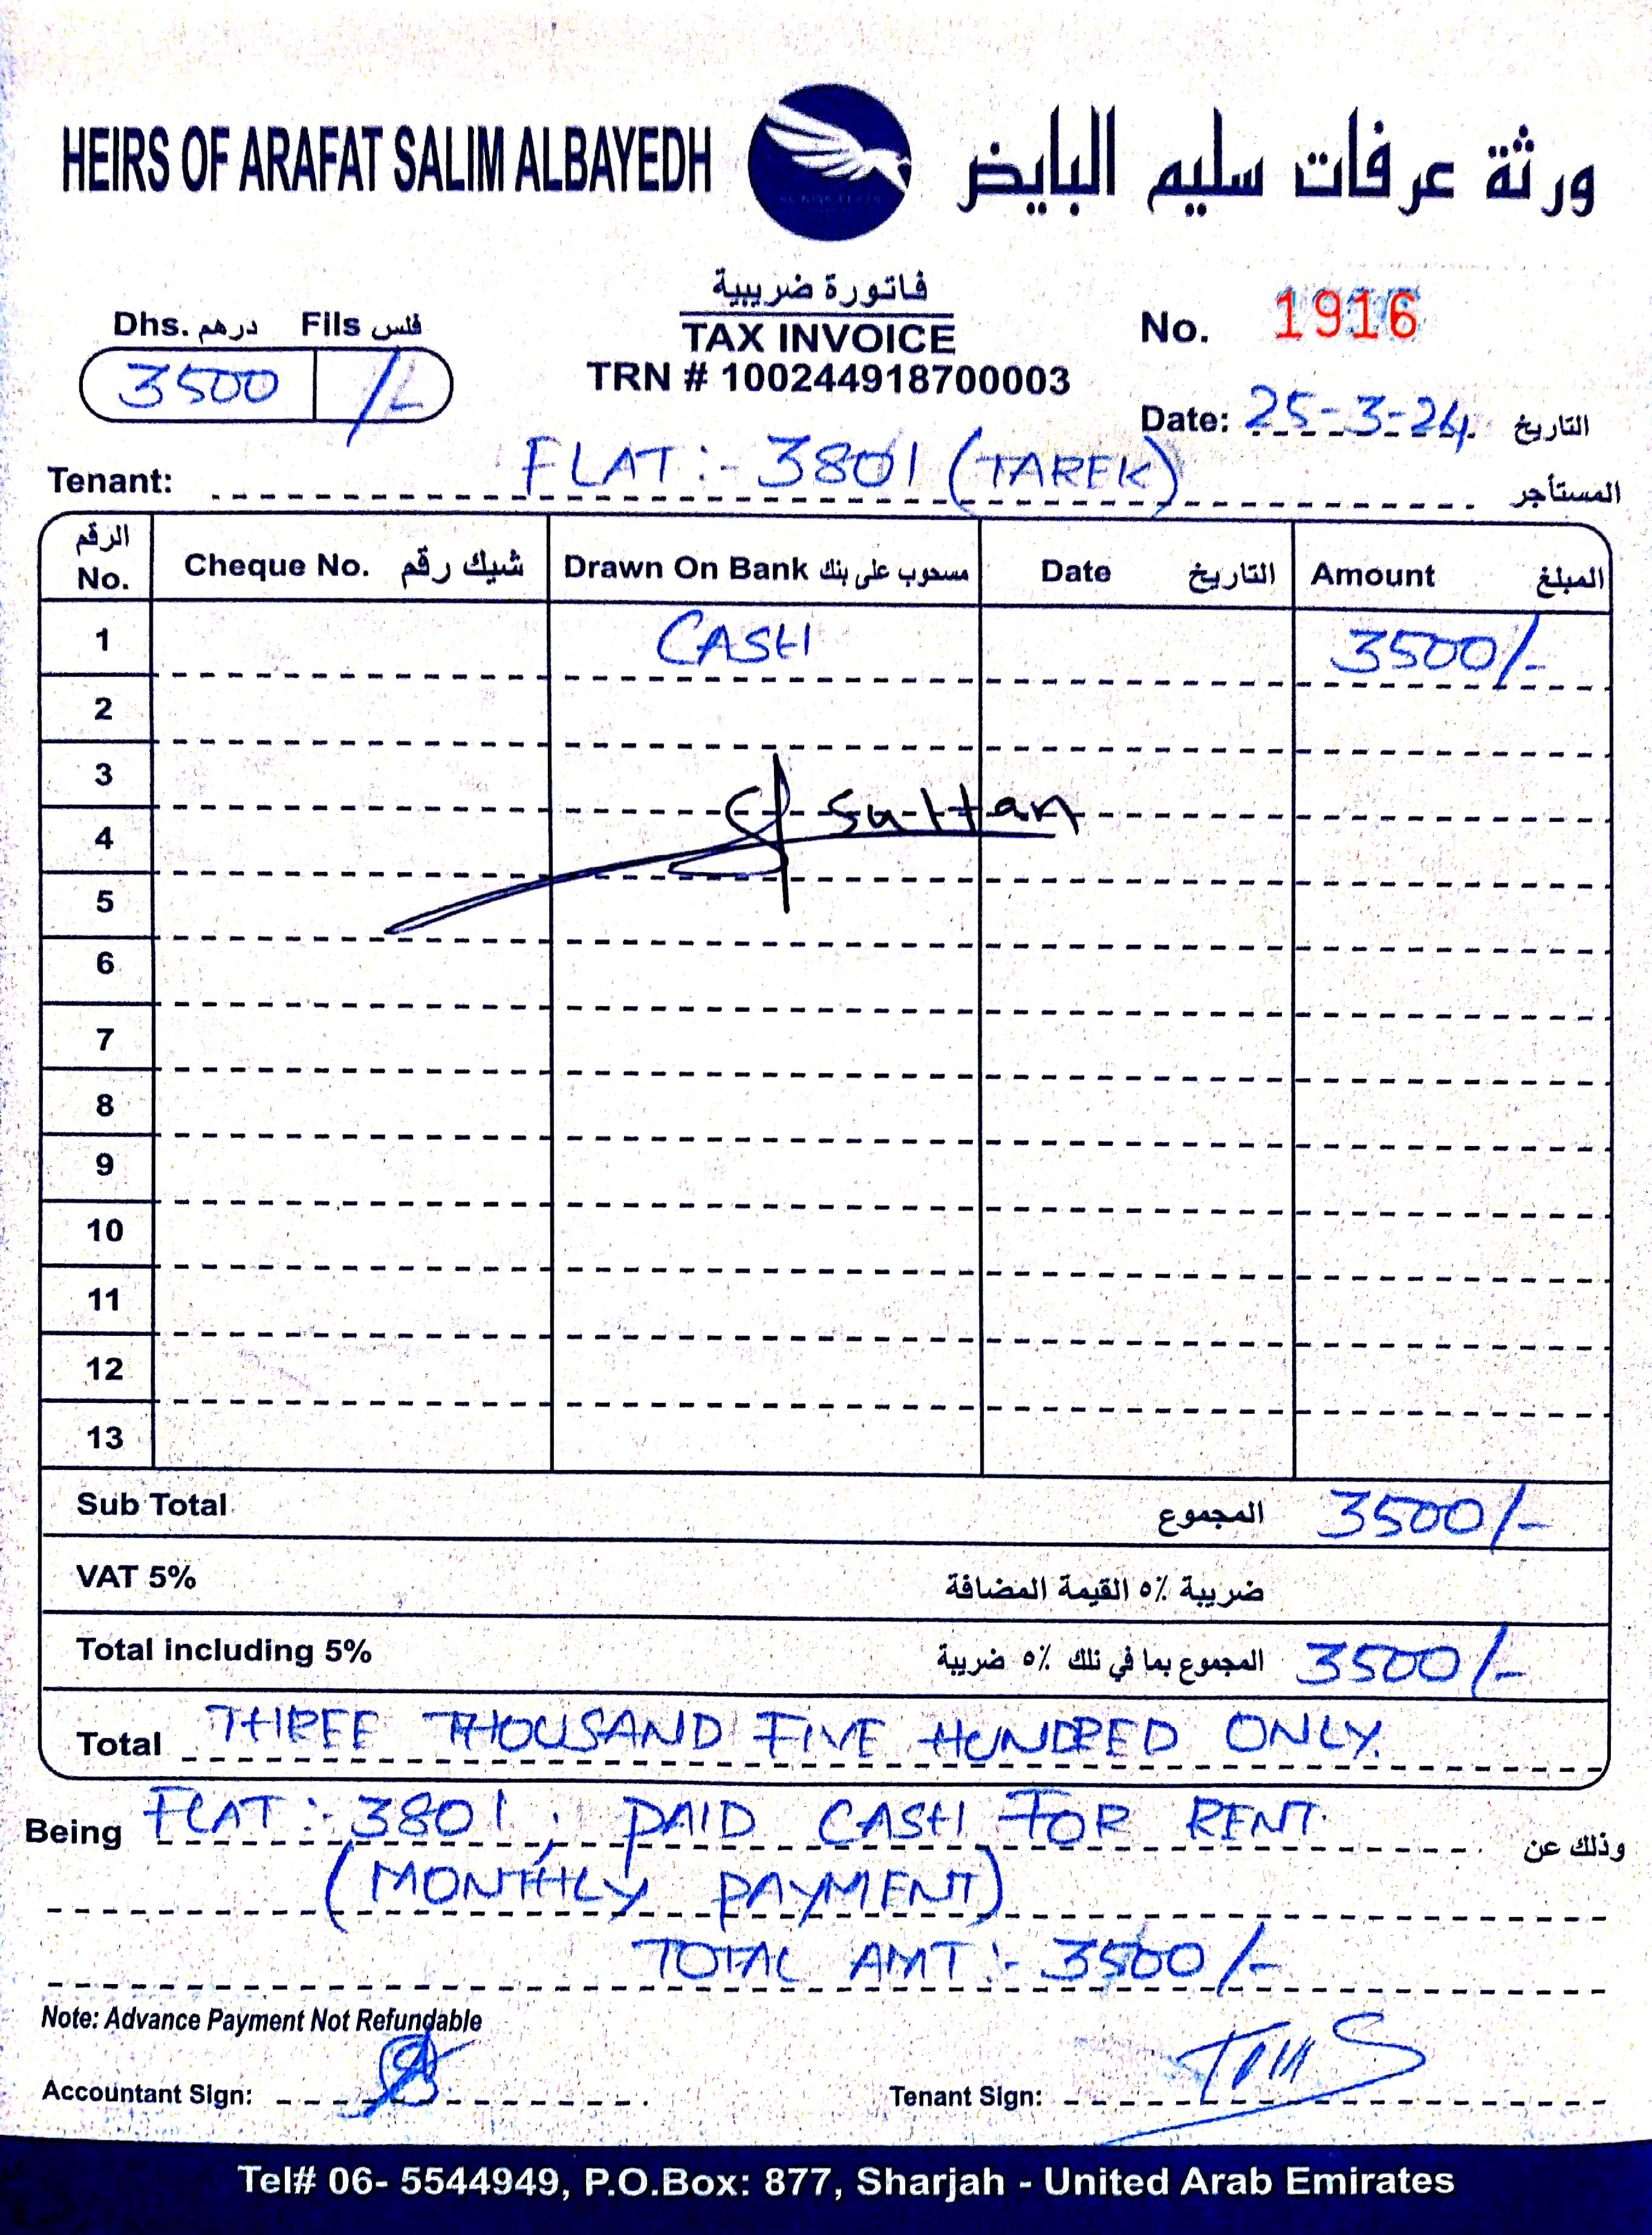 HEIRS OF ARAFAT SALIM ALBAYEDH ورثة عرفات سليم البايض
فاتورة ضريبية
TAX INVOICE
TRN # 100244918700003
Dhs. درهم Fils فلس
3500 /-
No. 1916
Date: 25-3-24 التاريخ
Tenant: FLAT:- 3801 (TAREK) المستأجر
الرقم No. Cheque No. شيك رقم Drawn On Bank مسحوب على بنك Date التاريخ Amount المبلغ
1 CASH 3500/-
2
3
Sultan
4
5
6
7
8
9
10
11
12
13
Sub Total المجموع 3500/-
VAT 5% ضريبة ٥٪ القيمة المضافة
Total including 5% المجموع بما في ذلك ٥٪ ضريبة 3500/-
Total THREE THOUSAND FIVE HUNDRED ONLY.
Being FLAT:- 3801, PAID CASH FOR RENT. وذلك عن
(MONTHLY PAYMENT)
TOTAL AMT:- 3500/-
Note: Advance Payment Not Refundable
Accountant Sign: Tenant Sign:
Tel# 06- 5544949, P.O.Box: 877, Sharjah - United Arab Emirates